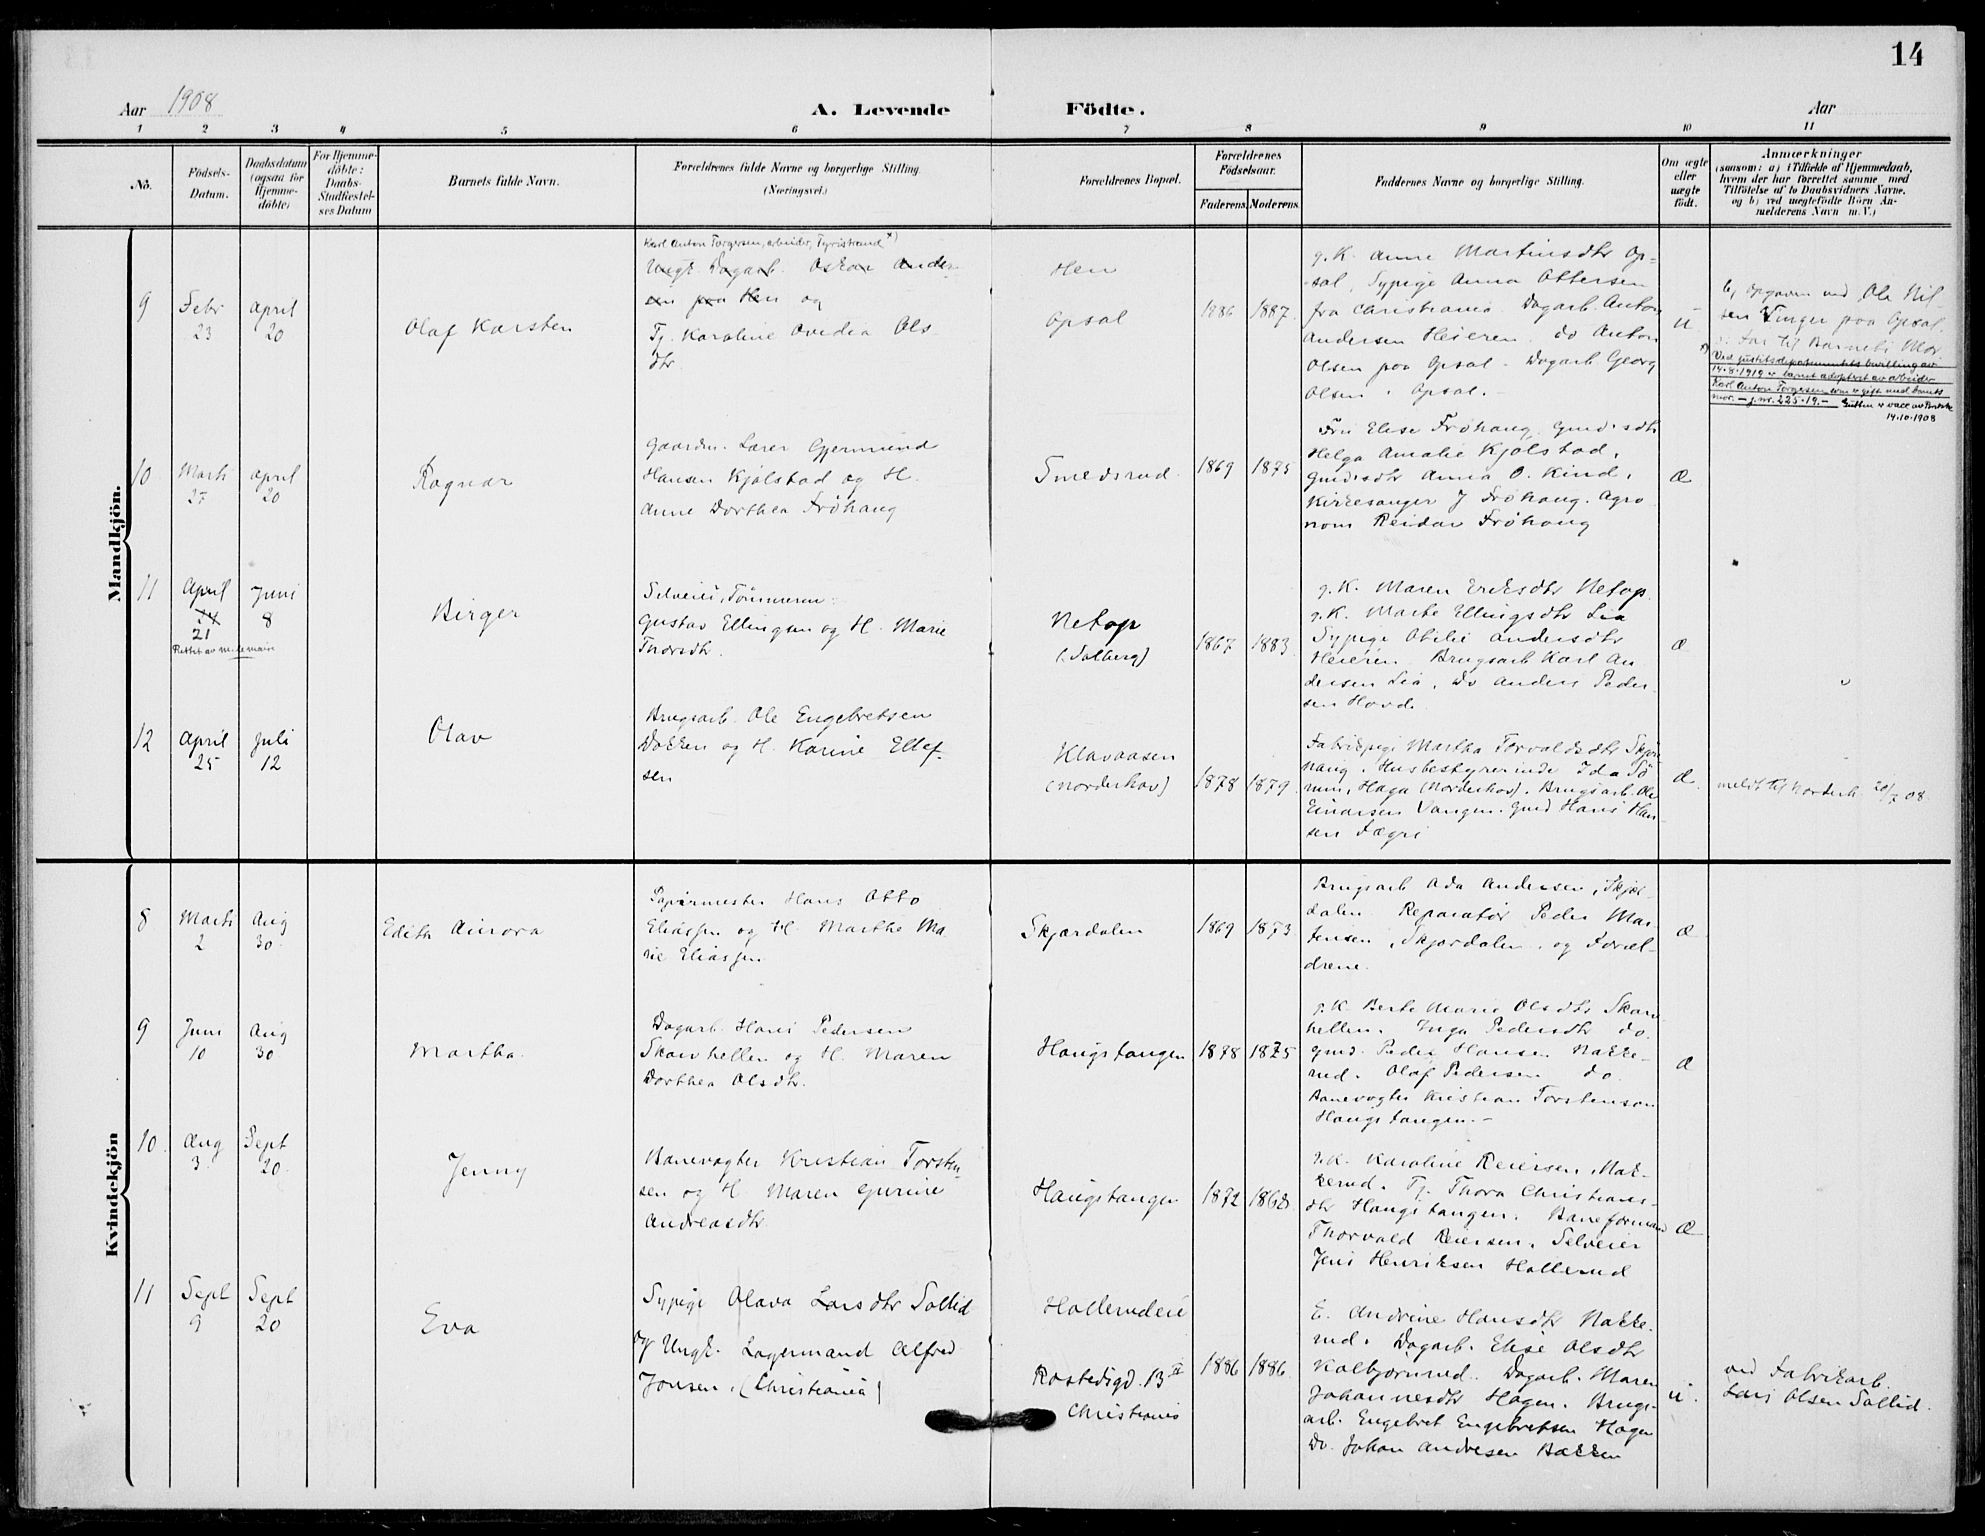 14
Aar 1908
A. Levende Födte.
Aar
1 2 3 4 5 6 7 8 9 10 11
No.
Födsels-
Datum.
Daabsdatum
(ogsaa for
Hjemme-
döbte)
For Hjemme-
döbte:
Daabs-
Stadfæstel-
ses Datum
Barnets fulde Navn.
Forældrenes fulde Navne og borgerlige Stilling
(Næringsvei.)
Forældrenes Bopæl.
Forældrenes
Födselsaar.
Faderens. Moderens.
Faddernes Navne og borgerlige Stilling.
Om ægte
eller
uægte
født.
Anmærkninger
(saasom: a) i Tilfælde af Hjemmedaab,
hvem der har forrettet samme med
Tilföielse af to Daabsvidners Navne.
og b) ved uægtefödte Börn An-
melderens Navn m. V.)
Mandkjön.
9
Febr
23
April
20
Olaf Karsten
Karl Anton Torgersen, arbeider, Tyristrand x)
Ungk. Dagarb. Oskar Ander
sen paa Hen og
Tj. Karoline Ovidia Ols
dtr.
Hen
Opsal
1886 1887.
g. K. Anne Martinsdtr Op=
sal, Sypige Anna Ottersen
fra Christiania Dagarb. Anton
Andersen Heieren. do Anton
Olsen paa Opsal. Dagarb Georg
Olsen i Opsal.
u
b, opgaven ved Ole Nil-
sen Tinger paa Opsal.
Far til Barnets Mor
x) Ved justitsdepartementets bevilling av
14.8.1919 er barnet adopteret av arbeider
Karl Anton Torgersen som er gift med barnets
mor. — j.nr. 225.19. —
14.10.1908
10
Marts
27
April
20
Ragnar
Gaardm. Lærer Gjermund
Hansen Kjølstad og H.
Anne Dorthea Frøhaug
Smedsrud.
1869 1875
Fru Elise Frøhaug, Gmd.sdtr
Helga Amalie Kjølstad,
Gmdsdtr Anna O. Kind,
Kirkesanger J Frøhaug. Agro
nom Reidar Frøhaug
Æ
11
April
24
21
Juni
8
Birger
Selveier, Tømmerm.
Gustav Ellingsen og H. Marie
Thorsdtr.
Netop
(Solberg)
1867 1883
g. K. Maren Eriksdtr Netop
g. K. Marte Ellingsdtr Lia
Sypige Otilie Andersdtr
Heieren Brugsarb Karl An
dersen Lia, Do Anders Peder
sen Hovde
Æ
12
April
25
Juli
12
Olav
Brugsarb. Ole Engebretsen
Dokken og H. Karine Ellef
sen
Klavaasen
(Norderhov)
1878 1879.
Fabrikpige Martha Torvaldsdtr Skjøn
haug, Husbestyrerinde Ida Sø
rum, Haga (Norderhov). Brugsarb. Ole
Einarsen Vangen. Gmd Hans Han-
sen Fægri
Æ.
meldt til Norderh. 20/7 08.
Kvindekjön
8
Marts
2
Aug
30
Edith Aurora
Papirmester Hans Otto
Eliassen og H. Marthe Ma
rie Eliassen
Skjærdalen
1869 1873
Brugsarb Ada Andersen, Skjær
dalen Reparatør Peder Mar-
tensen, Skjærdalen, og Foræl-
drene.
Æ
9
Juni
10
Aug
30
Martha.
Dagarb. Hans Pedersen
Skarvhellen og H. Maren
Dorthea Olsdtr.
Haugstangen
1878 1875
g. K. Berte Marie Olsdtr Skarv
hellen. Inga Pedersdtr do.
Gmd. Peder Hansen Nakke-
rud. Olaf Pedersen do.
Banevogter Kristian Torstensen
Haugstangen. —
Æ
10.
Aug
3.
Sept
20
Jenny
Banevogter Kristian Torsten
sen og H. Maren Gurine
Andreasdtr
Haugstangen
1872 1868
g. K. Karoline Reiersen, Nak-
kerud. Tj. Thora Christians-
dtr Haugstangen. Baneformand
Thorvald Reiersen, Selveier
Jens Henriksen Hallerud
Æ
11
Sept
9
Sept
20
Eva
Sypige Olava Larsdtr Sollid
og Ungk. Lagermand Alfred
Jonsen. (Christiania)
Hallerudeie
Christiania
1886 1886.
E. Andrine Hansdtr Nakke-
rud. Dagarb. Elise Olsdtr
Kalbjørnrud. Dagarb. Maren
Johannesdtr Hagen. Brugs-
arb. Engebret Engebretsen Hagen
Do. Johan Andresen Bakken
u.
ved Fabrikarb.
Lars Olsen Sollid.